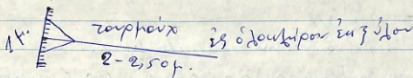 1μ. τουρμούχ ἐξ ὁλοκλήρου ἐκ ξύλου
2-2,50μ.